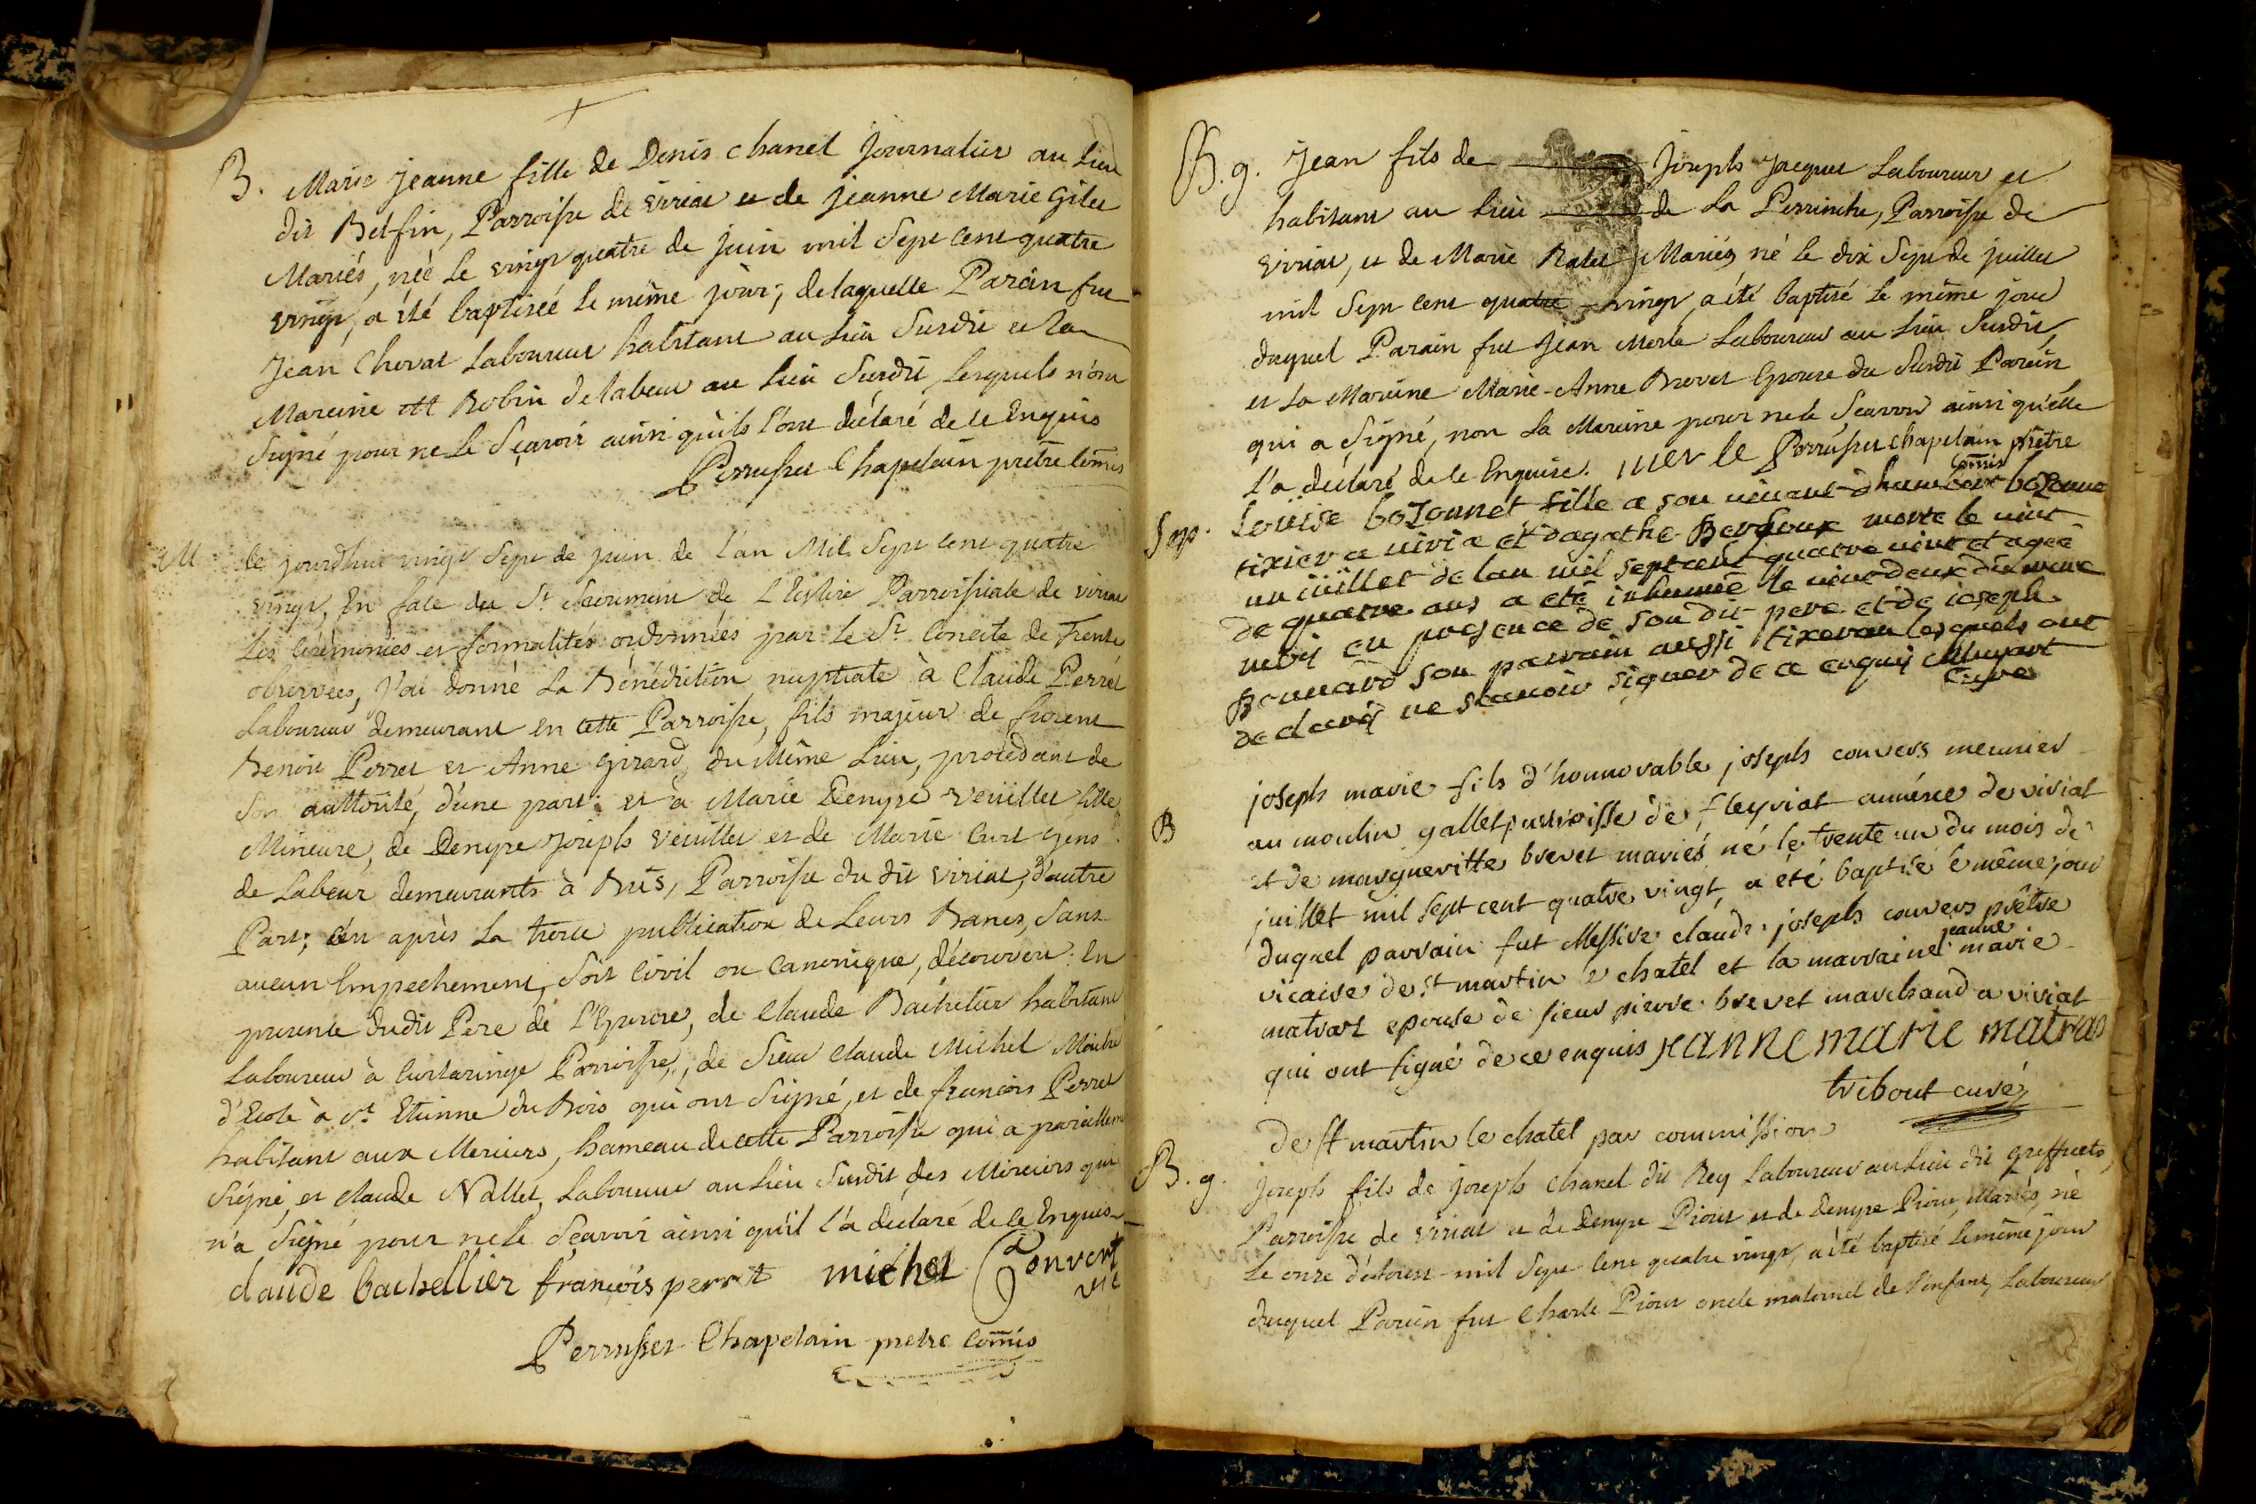 B. Marie Jeanne fille de Denis Chanel Journalier au Lieu
dit Belfin, Parroisse de viriat et de Jeanne Marie Gilet
Mariés, née le vingt quatre de juin mil Sept Cent quatre
vingt, a été baptisée le même jour; de laquelle Parain fut
Jean Chevat Laboureur habitant au Lieu Susdit et la
Mareine Robin de labeur au Lieu Susdit, Lesquels n'ont
Signé pour ne le Sçavoir ainsi qu'ils l'ont déclaré de ce Enquis
Perrusset Chapelain prètre Comis
M Ce jourdhui vingt Sept de juin de l'an Mil Sept cent quatre
vingt, En face du St Sacrement de L'Eglise Parroissiale de viriat
Les Cérémonies et formalités ordonnées par le St Concile de Trente
observées, J'ai donné la Bénédiction nuptiale à Claude Perret
Laboureur demeurant en cette Parroisse, fils majeur de
Benoit Perret et Anne Girard, du Même Lieu, procédant de
Son authorité, d'une part: et à Marie Denyse Veuillet fille
Mineure, de Denyse Joseph Veuillet et de Marie Curt Gens
de Labeur demeurants à Bus, Parroisse du dit viriat, d'autre
Part; et après la publication de Leurs Bancs, Sans
aucun Empechement, Soit Civil ou Canonique, découvert: En
presence dudit Pere de L'Epouse, de Claude Bachelier habitant
Laboureur à Curtaringe Parroisse, de Sieur Claude Michel Maitre
d'Ecole à St. Etienne du Bois qui ont Signé, et de françois Perret
habitant aux Merciers, hameau de cette Parroisse qui a pareillement
Signé, et Claude Nallet, Laboureur au Lieu Susdit des Merciers qui
n'a Signé pour ne le Sçavoir ainsi qu'il l'a déclaré de ce Enquis
claude bachellier françois perret michel Convert
vic
Perrusset Chapelain pretre Comis
B. g. Jean fils de Joseph Jacquet Laboureur et
habitant au Lieu de La Perrinche, Parroisse de
viriat, et de Marie Ratet Mariés né le dix Sept de juillet
mil Sept cent quatre vingt, a été baptisé le même jour
duquel Parain fut Jean Merle Laboureur au Lieu Susdit,
et la Mareine Marie-Anne Brevet Epouse du Susdit Parain
qui a Signé, non la Mareine pour ne le Sçavoir ainsi qu'elle
l'a déclaré de ce Enquise. Perrusset chapelain prêtre
Comis
Sep. Louise boZonnet fille a son vivant bozonnet
tixier a viria et dagathe morte le vint
un iüillet de lan mil sept cent quatre vint et agée
de quatre ans a eté inhumée le vint deux du meme
mois en presence de son dit pere et de ioseph
Bonnard son parrain aussi tixeran lesquels ont
declaré ne scavoir signer de ce enquis
Curé
B joseph marie fils d'honnorable joseph convers meunier
au moulin gallet parroisse de fleyriat annéxe de viriat
et de marguerite brevet mariés né le trente un du mois de
juillet mil sept cent quatre vingt, a été baptisé le même jour
duquel parrain fut Messire claude joseph convers prêtre
vicaire de st martin le chatel et la marraine jeanne marie
matrat epouse de sieur pierre brevet marchand a viriat
qui ont signé de ce enquis jeanne marie matras
tribout curé
de st martin le chatel par commission
B. g. Joseph fils de joseph Chanel dit Rey Laboureur au Lieu dit Greffiets,
Parroisse de viriat et de Denyse Piout et de Denyse Piout, Mariés, né
le onze d'Aoust mil Sept Cent quatre vingt, a été baptisé le même jour
duquel Parain fut Charle Piout oncle maternel de l'enfant, Laboureur